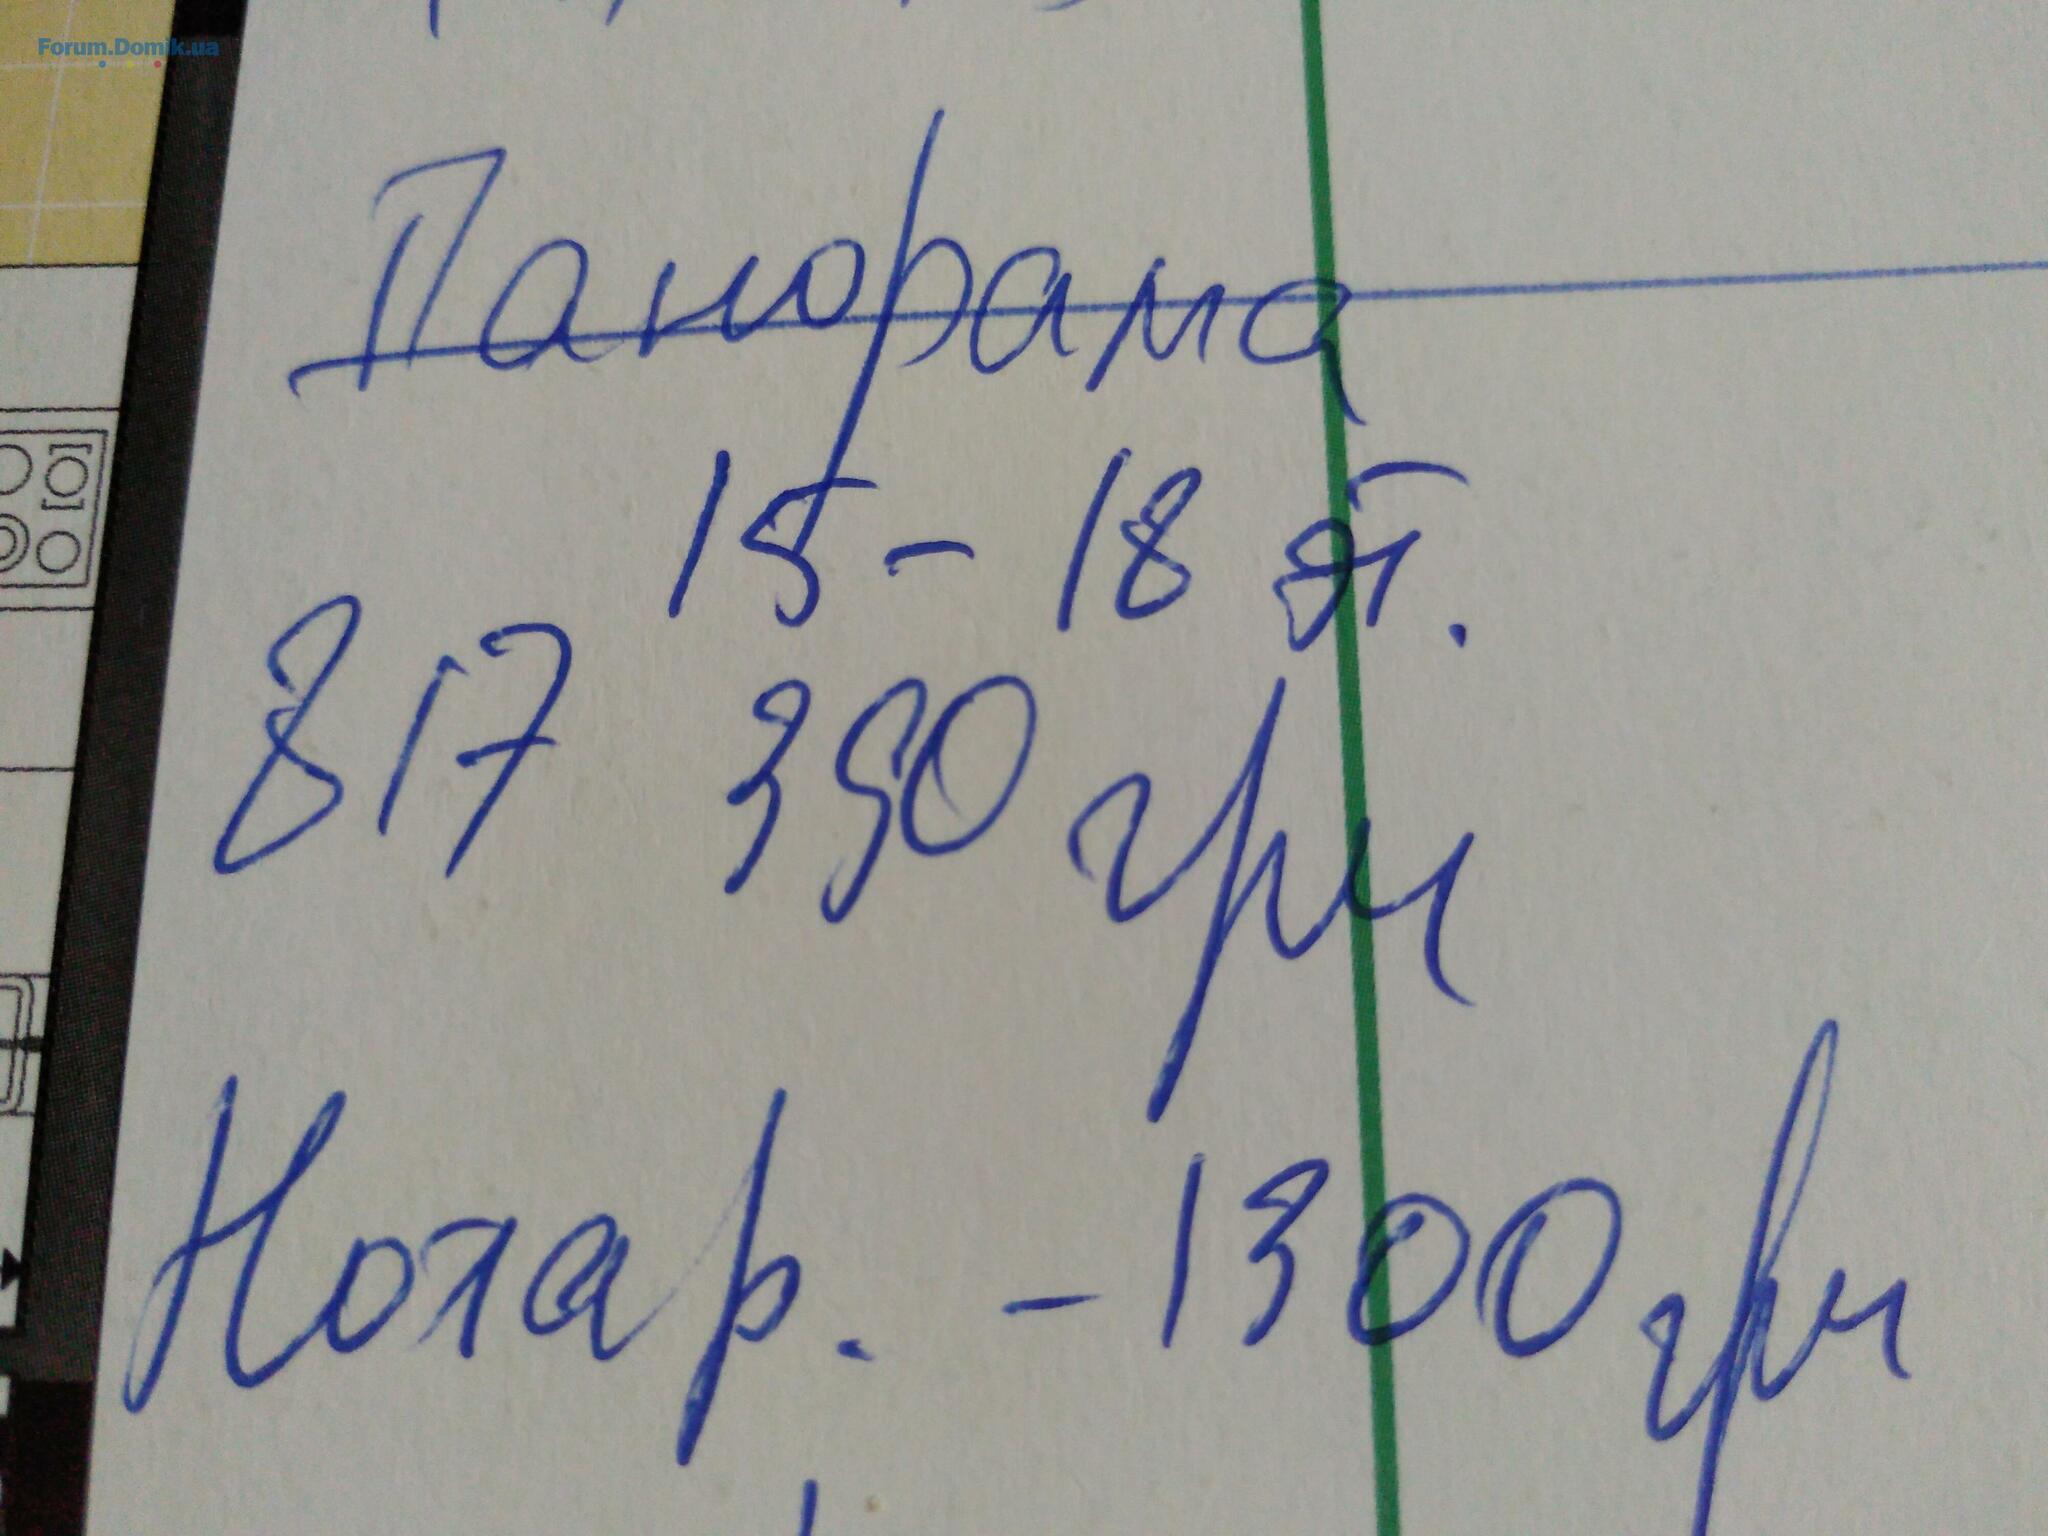 Forum.Domik.ua
Панорама
15 - 18 эт.
817 350 грн
Нотар. - 1300 грн